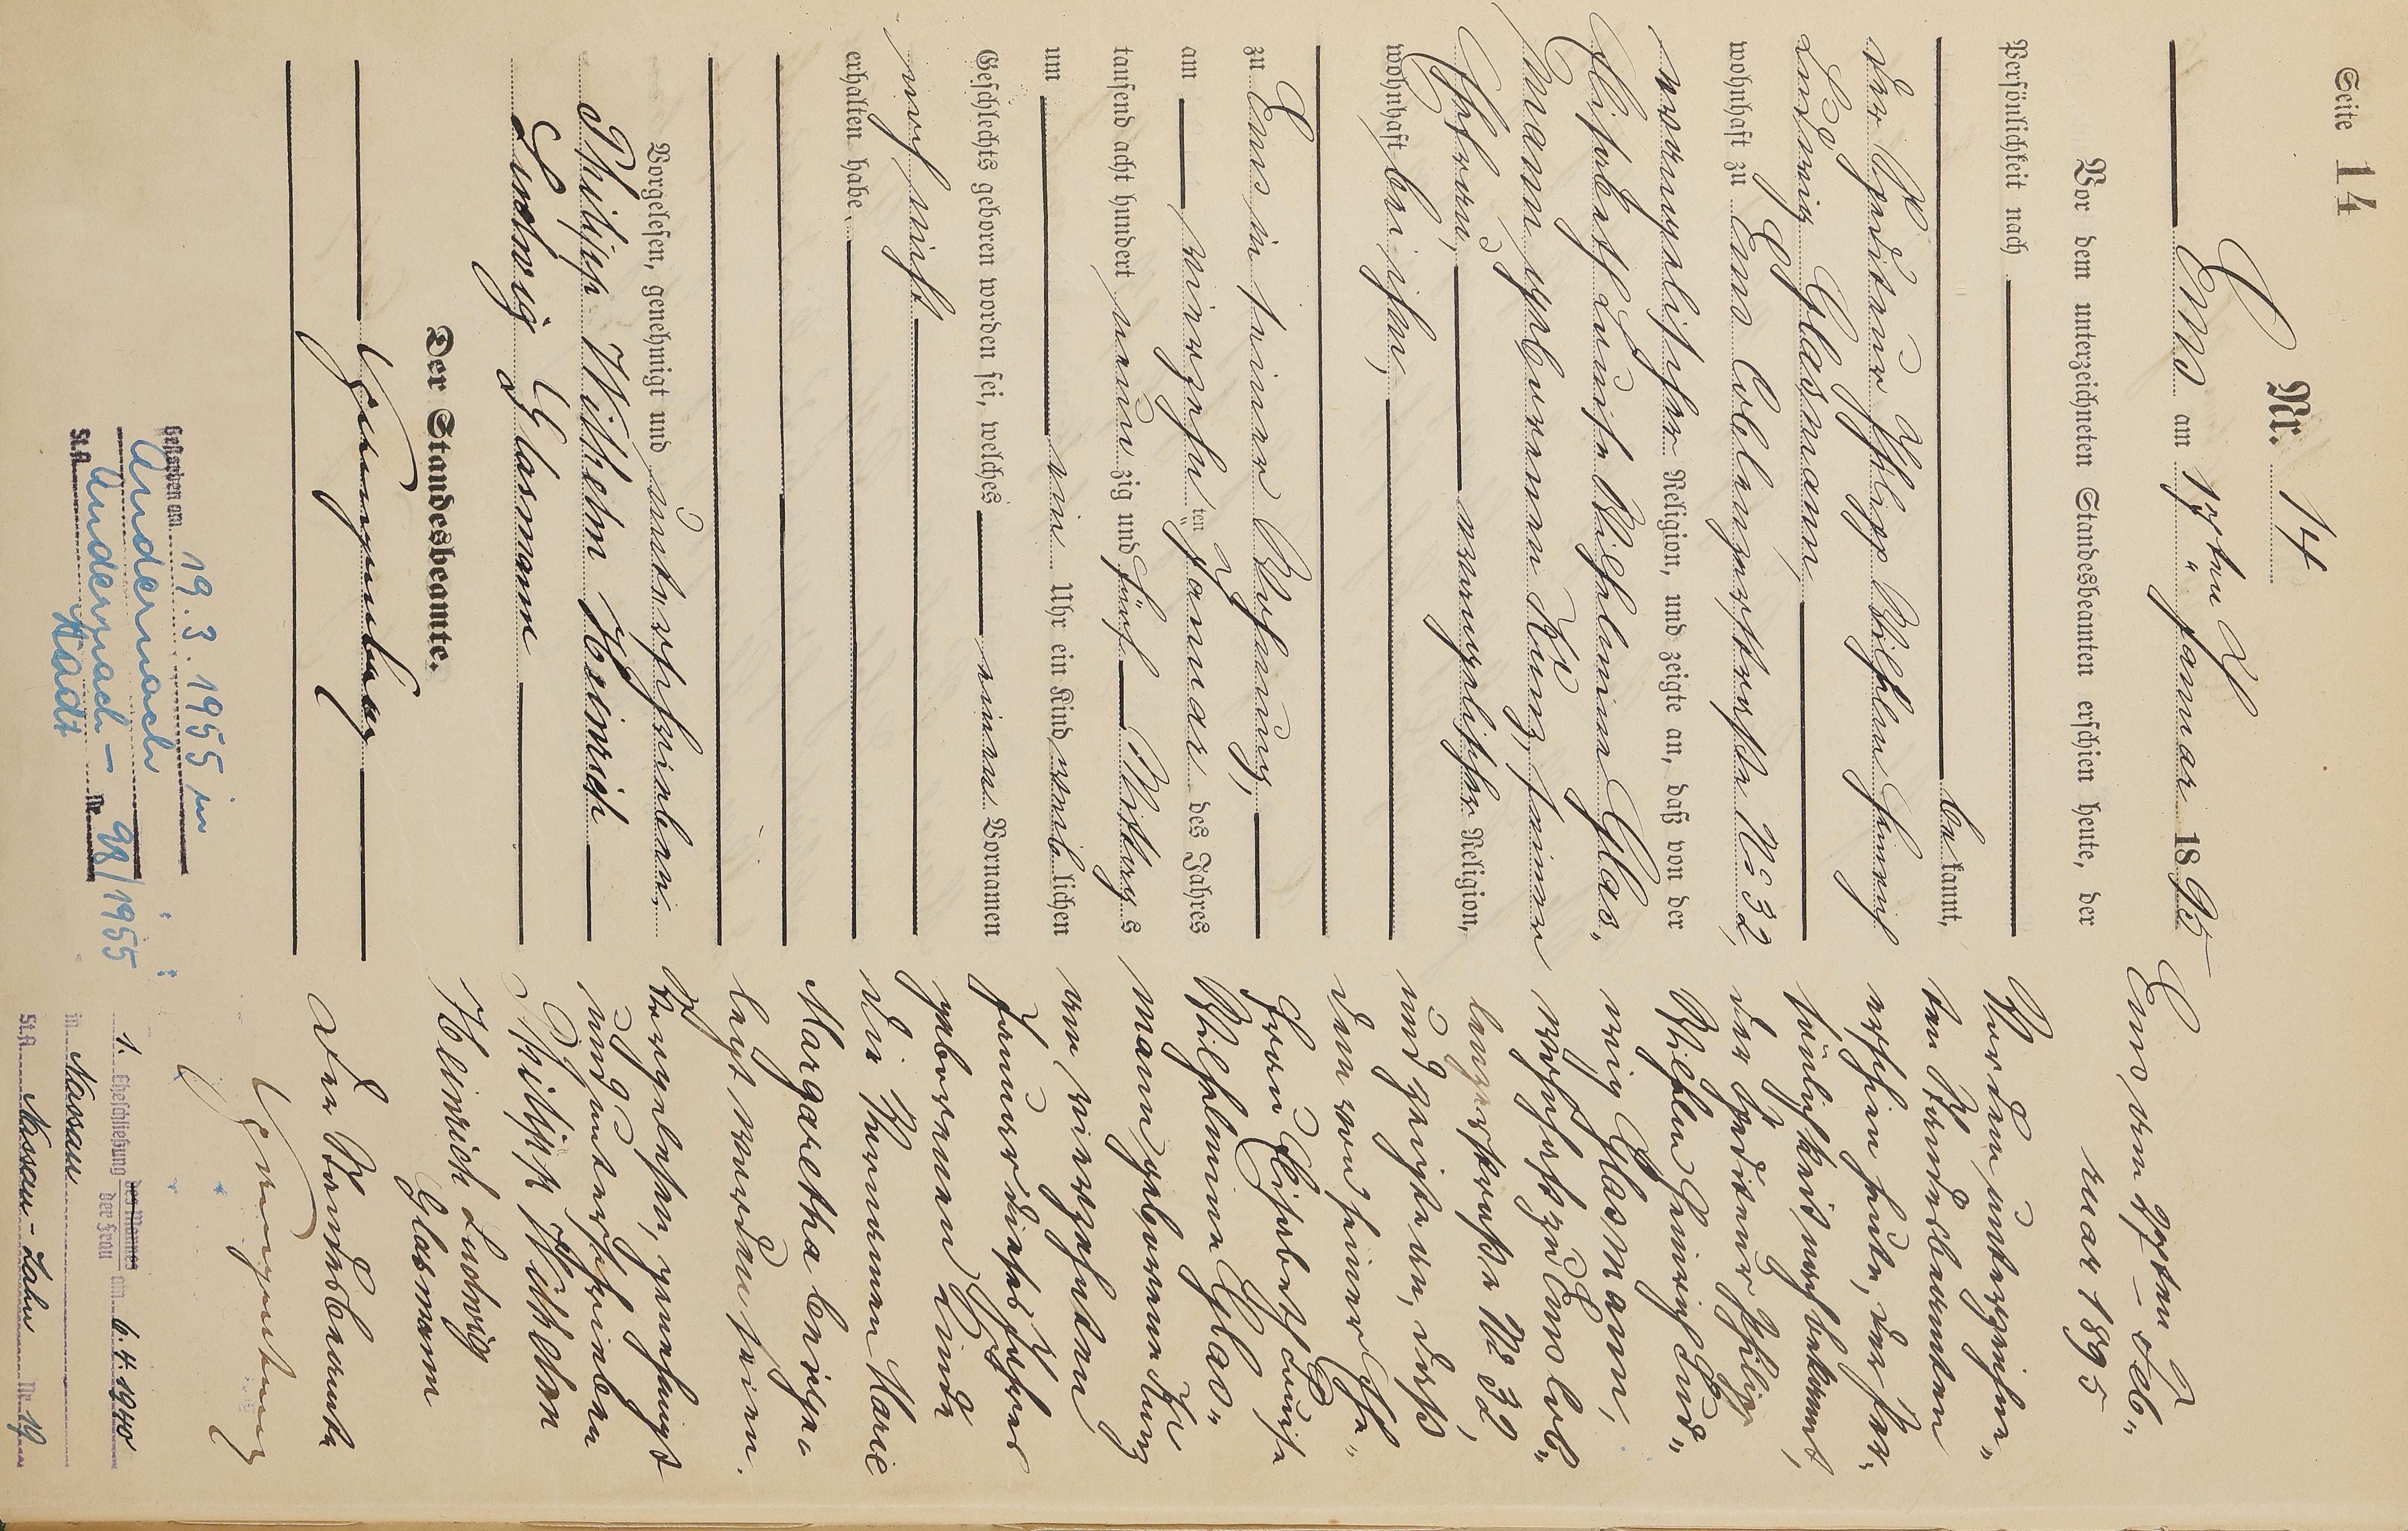 Seite 14
Nr. 14
Ems am 17ten Januar 1895
Vor dem unterzeichneten Standesbeamten erschien heute, der
Persönlichkeit nach
bekannt,
der Spediteur Philipp Wilhelm Heinrich
Ludwig Glasmann,
wohnhaft zu Ems Coblenzerstraße No 32,
evangelischer Religion, und zeigte an, daß von der
Elisabeth Luise Wilhelmine Glas-
mann geborenen Kunz, seiner
Ehefrau,
evangelischer Religion,
wohnhaft bei ihm,
zu Ems in seiner Wohnung,
am vierzehnten Januar des Jahres
tausend acht hundert neunzig und fünf Mittags
um ein Uhr ein Kind weiblichen
Geschlechts geboren worden sei, welches einen Vornamen
noch nicht
erhalten habe.
Vorgelesen, genehmigt und unterschrieben
Philipp Wilhelm Heinrich
Ludwig Glasmann
Der Standesbeamte.
Ems den ten Feb-
ruar 1895
Vor dem unterzeichne-
ten Standesbeamten
erschien heute, der Per-
sönlichkeit nach bekannt,
der Spediteur Philipp
Wilhelm Heinrich Lud-
wig Glasmann,
wohnhaft zu Ems Cob-
lenzerstraße No 32,
und zeigte an, daß
dem von seiner Ehe-
frau Elisabeth Luise
Wilhelmine Glas-
mann geborene Kunz
am vierzehnten
Januar dieses Jahres
geborenen Kinde
die Vornamen Marie
Margaretha beige-
legt worden seien.
Vorgelesen, genehmigt
und unterschrieben
Philipp Wilhelm
Heinrich Ludwig
Glasmann
Der Standesbeamte
Gestorben am 19.3.1955 in
Andernach
St.A. Andernach- Nr. 98/1955
Stadt
1. Eheschließung des Mannes
der Frau am 6.4.1940
in Nassau
St.A. Nassau-Lahn Nr. 19